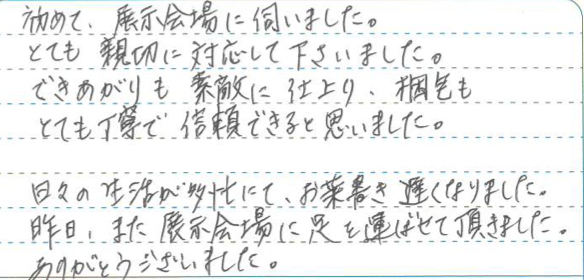 初めて、展示会場に伺いました。
とても親切に対応して下さいました。
できあがりも素敵に仕上り、梱包も
とても丁寧で信頼できると思いました。
日々の生活が多忙にて、お葉書き遅くなりました。
昨日、また展示会場に足を運ばせて頂きました。
ありがとうございました。